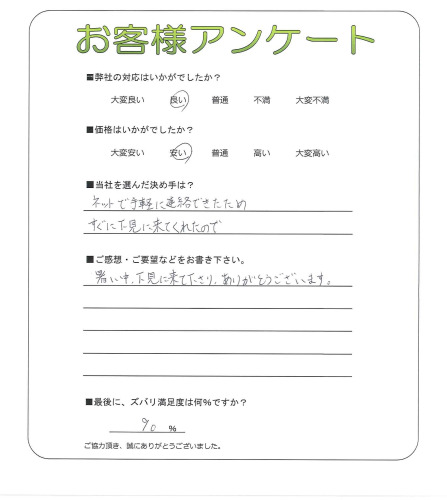 お客様アンケート
■弊社の対応はいかがでしたか？
大変良い 良い 普通 不満 大変不満
■価格はいかがでしたか？
大変安い 安い 普通 高い 大変高い
■当社を選んだ決め手は？
ネットで手軽に連絡できたため
すぐに下見に来てくれたので
■ご感想・ご要望などをお書き下さい。
暑い中、下見に来て下さり、ありがとうございます。
■最後に、ズバリ満足度は何％ですか？
90 ％
ご協力頂き、誠にありがとうございました。